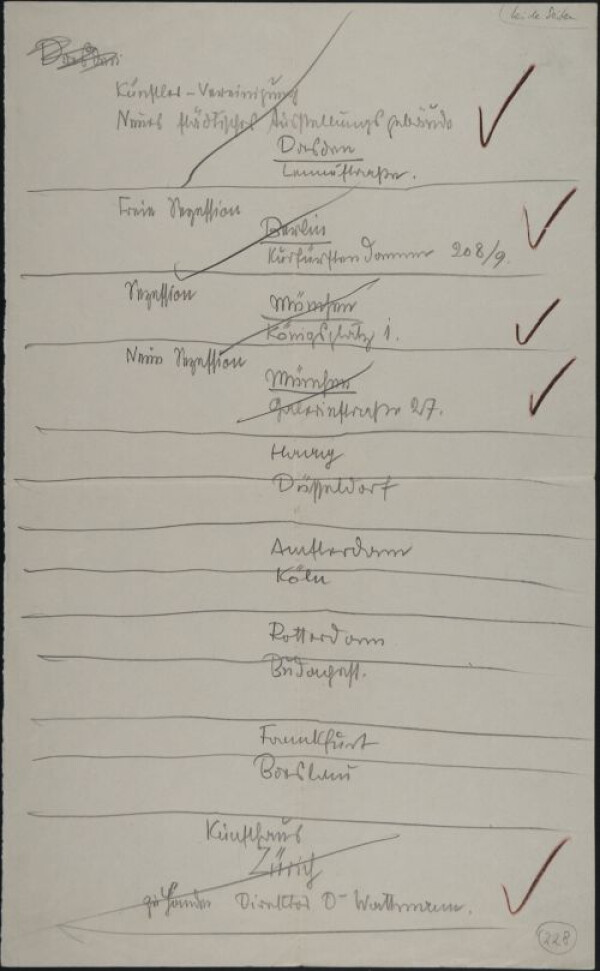 Dresden
Künstler-Vereinigung
Neues städtisches Ausstellungsgebäude
Dresden
Lennéstraße.
Freie Sezession
Berlin
Kurfürstendamm 208/9.
Sezession
München
Königsplatz 1.
Neue Sezession
München
Galeriestraße 27.
Haag
Düsseldorf
Amsterdam
Köln
Rotterdam
Budapest.
Frankfurt
Breslau
Kunsthaus
Zürich
zu Händen Direktor Dr Wartmann.
228